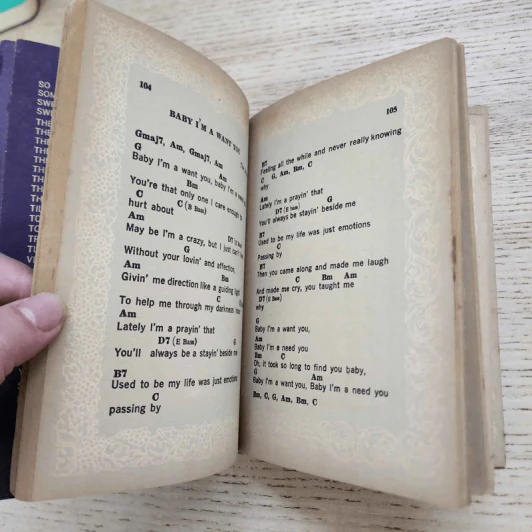 SO
SOM
SWE
SWE
THE
THE
THE
THE
THE
104
BABY I'M A WANT YOU
Gmaj7, Am, Gmaj7, Am
G Am
Baby I'm a want you, baby I'm a
Bm
You're that only one I care enough to
C C (B Bass)
hurt about
Am D7
May be I'm a crazy, but I just can't
G
Without your lovin' and affection,
Am Bm
Givin' me direction like a guiding light
C
To help me through my darkness
Am
Lately I'm a prayin' that
D7 (E Bass) G
You'll always be a stayin' beside me
B7
Used to be my life was just emotions
C
passing by
105
B7
Feeling all the while and never really knowing
C G, Am, Bm, C
why
Am
Lately I'm a prayin' that
D7 (E Bass) G
You'll always be stayin' beside me
B7
Used to be my life was just emotions
C
Passing by
B7
Then you came along and made me laugh
C Bm Am
And made me cry, you taught me
D7 (E Bass)
why
G
Baby I'm a want you,
Am
Baby I'm a need you
Bm C
Oh, it took so long to find you baby,
G Am
Baby I'm a want you, Baby I'm a need you
Bm, C, G, Am, Bm, C